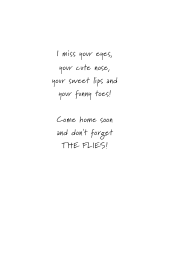 I miss your eyes,
your cute nose,
your sweet lips and
your funny toes!
Come home soon
and don't forget
THE FLIES!